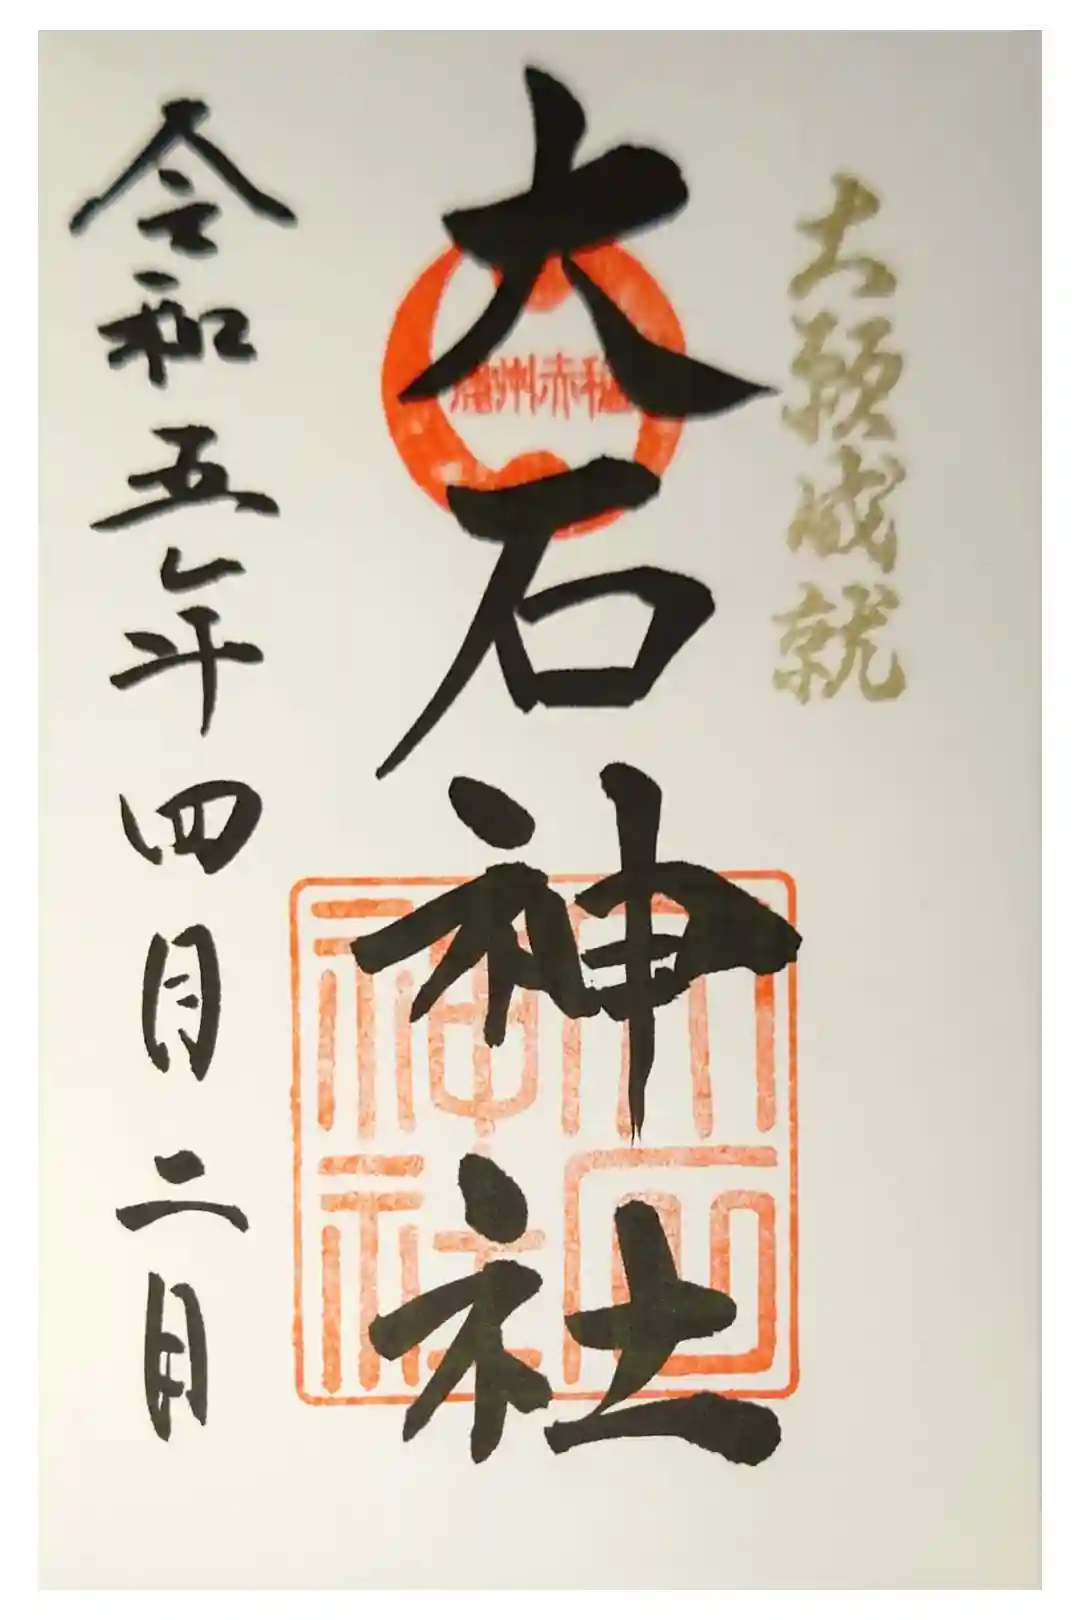 大願成就
大石神社
播州赤穂
大石神社
令和五年四月二日